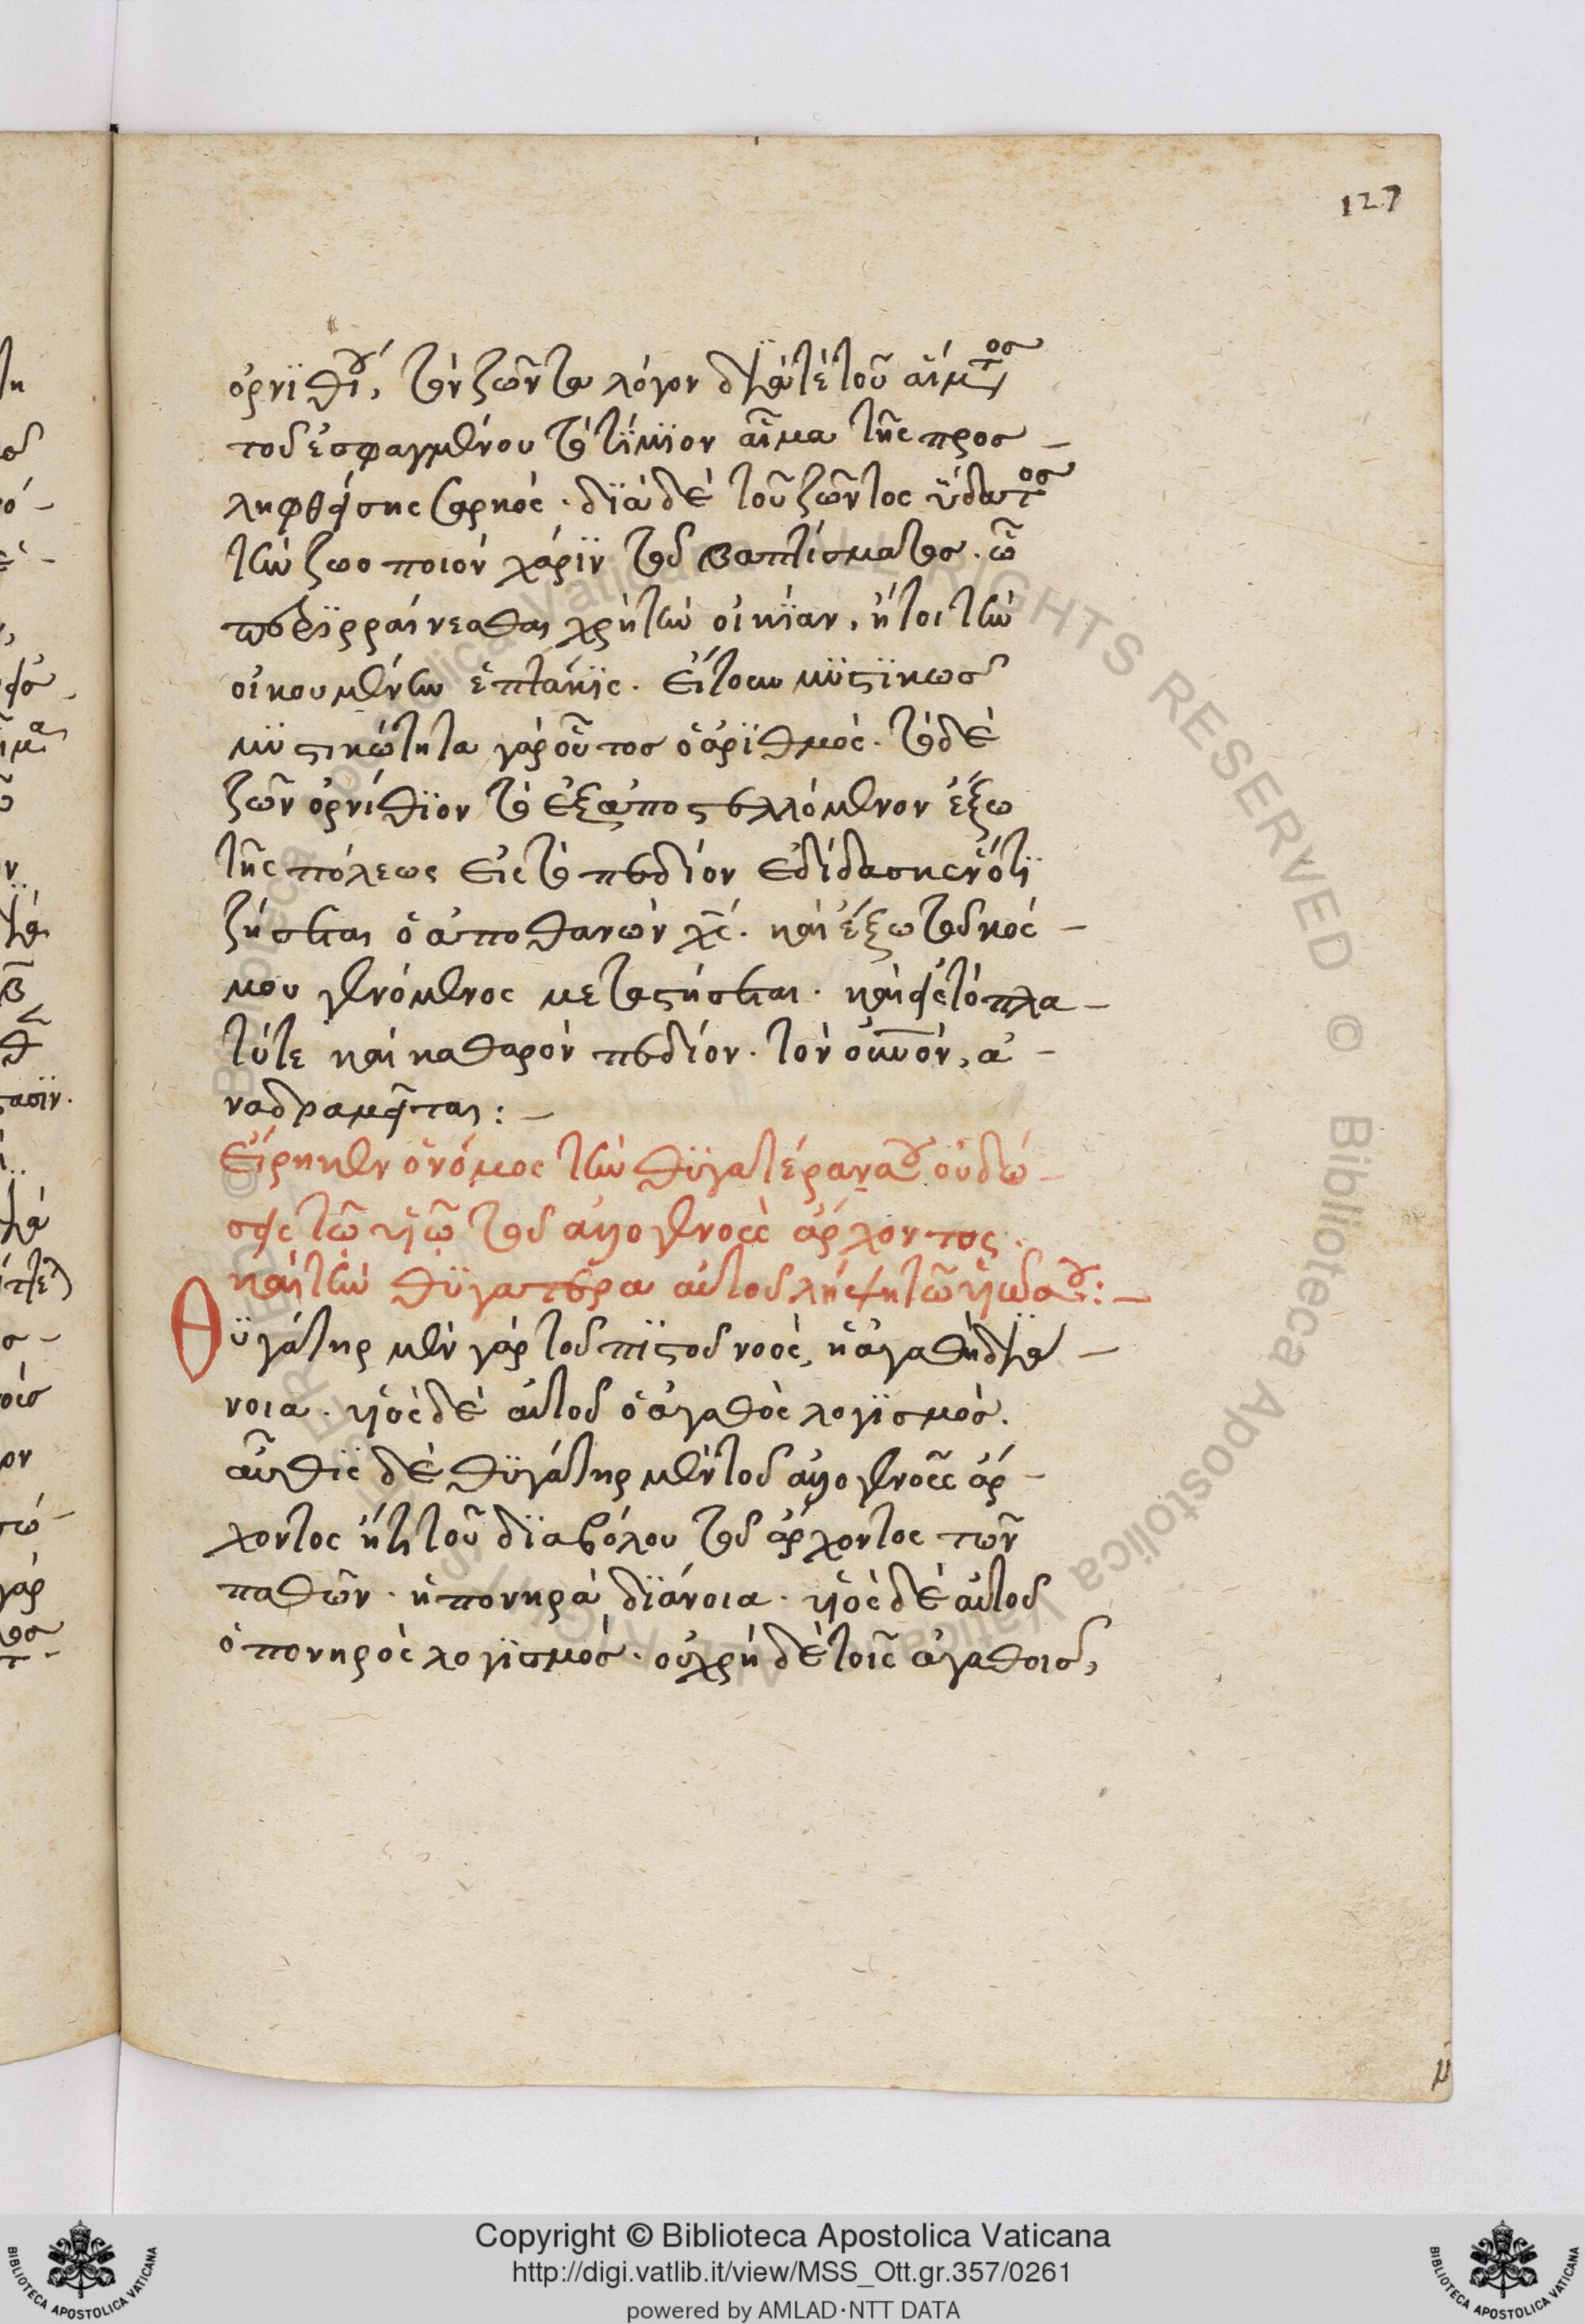 127
ὀρνϊθίου, τὸν ζῶντα λόγον διὰ τὲ τοῦ αἵματος
τοῦ ἐσφαγμένου τὸ τΐμϊον αἷμα τῆς προσ –
ληφθείσης σαρκός · δϊὰ δὲ τοῦ ζῶντος ὕδατος
τὴν ζωοποιὸν χάρϊν τοῦ βαπτίσματος. ᾧ
περϊρραίνεσθαι χρὴ τὴν οἰκϊαν, ἤτοι τὴν
οἰκουμένην ἑπτάκϊς. εἴτουν μϋστϊκῶς
μϋστικώτητα γὰρ οὗτος ὁ ἀρϊθμός. τὸ δὲ
ζῶν ὀρνίθϊον τὸ ἐξαποστελλόμενον ἔξω
τῆς πόλεως εἰς τὸ πεδίον ἐδίδασκεν ὅτϊ
ζήσεται ὁ ἀποθανὼν χς. καὶ ἔξω τοῦ κόσ –
μου γενόμενος μεταστήσεται. καὶ εἰς τὸ πλα –
τύ τε καὶ καθαρὸν πεδίον. τὸν οὐνον, ἀ –
ναδραμεῖται: –
Εἴρηκεν ὁ νόμος τὴν θϋγατέρα σου οὐ δώ –
σεις τῷ υἱῷ τοῦ ἀλλογενοῦς ἄρχοντος.
καὶ τὴν θϋγατέρα αὐτοῦ λήψη τῷ υἱῷ σου: –
Θϋγάτηρ μὲν γὰρ τοῦ πϊστοῦ νοός, ἡ ἀγαθὴ διά –
νοια. υἱὸς δὲ αὐτοῦ ὁ ἀγαθὸς λογϊσμός.
αὖθϊς δὲ θϋγάτηρ μὲν τοῦ ἀλλογενοῦς ἄρ –
χοντος ἤτοι τοῦ δϊαβόλου τοῦ ἄρχοντος τῶν
παθῶν. ἡ πονηρὰ δϊάνοια. υἱὸς δὲ αὐτοῦ
ὁ πονηρὸς λογϊσμός. οὐ χρὴ δὲ τοῖς ἀγαθοις,
Copyright © Biblioteca Apostolica Vaticana
http://digi.vatlib.it/view/MSS_Ott.gr.357/0261
powered by AMLAD·NTT DATA